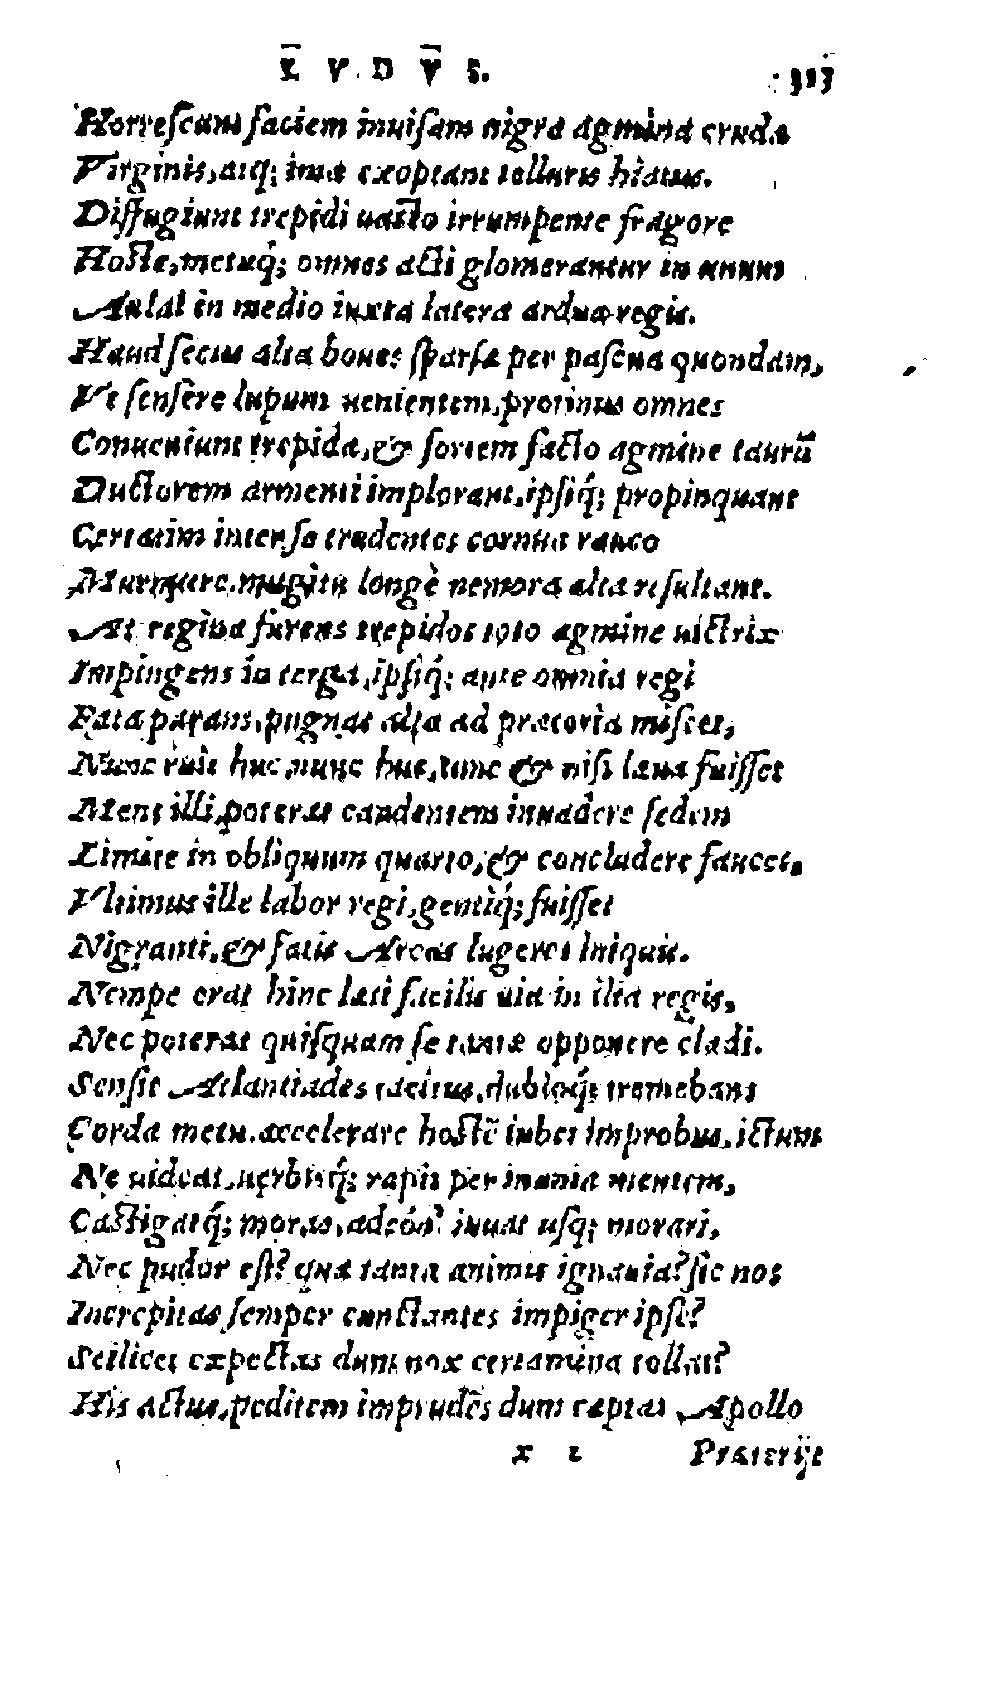 LVDVS. 323
Horrescunt faciem inuisam nigra agmina crudæ
Virginis, atq; imæ exoptant telluris hiatus.
Diffugiunt trepidi uasto irrumpente fragore
Hoste, metuq́; omnes acti glomerantur in unum
Aulaï in medio iuxta latera ardua regis.
Haud secus alta boues sparsæ per pascua quondam,
Vt sensêre lupum uenientem, protinus omnes
Conueniunt trepidæ, & fortem facto agmine taurũ
Ductorem armenti implorant, ipsiq́; propinquant
Certatim intenso trudentes cornua rauco
Murmure, mugitu longè nemora alta resultant.
At regina furens trepidos toto agmine uictrix
Impingens in terga, ipsiq́; ante omnia regi
Fata parans, pugnas alta ad prætoria miscet,
Nunc ruit huc, nunc huc, tunc & nisi læua fuisset
Mens illi, poterat candentem inuadere sedem
Limite in obliquum quarto, & concludere fauces.
Vltimus ille labor regi, gentiq́; fuisset
Nigranti, & fatis Arcas lugeret iniquis.
Nempe erat hinc lati facilis uia in ilia regis,
Nec poterat quisquam se tantæ opponere cladi.
Sensit Atlantiades tacitus, dubioq́; tremebant
Corda metu, accelerare hostẽ iubet improbus, ictum
Ne uideat, uerbisq́; rapit per inania mentem,
Castigatq́; moras, adeón' iuuat usq; morari,
Nec pudor est? quæ tanta animis ignauia? sic nos
Increpitas semper cunctantes impiger ipse?
Scilicet expectas dum nox certamina tollat?
His actus, peditem imprudẽs dum captat Apollo
x Præterijt